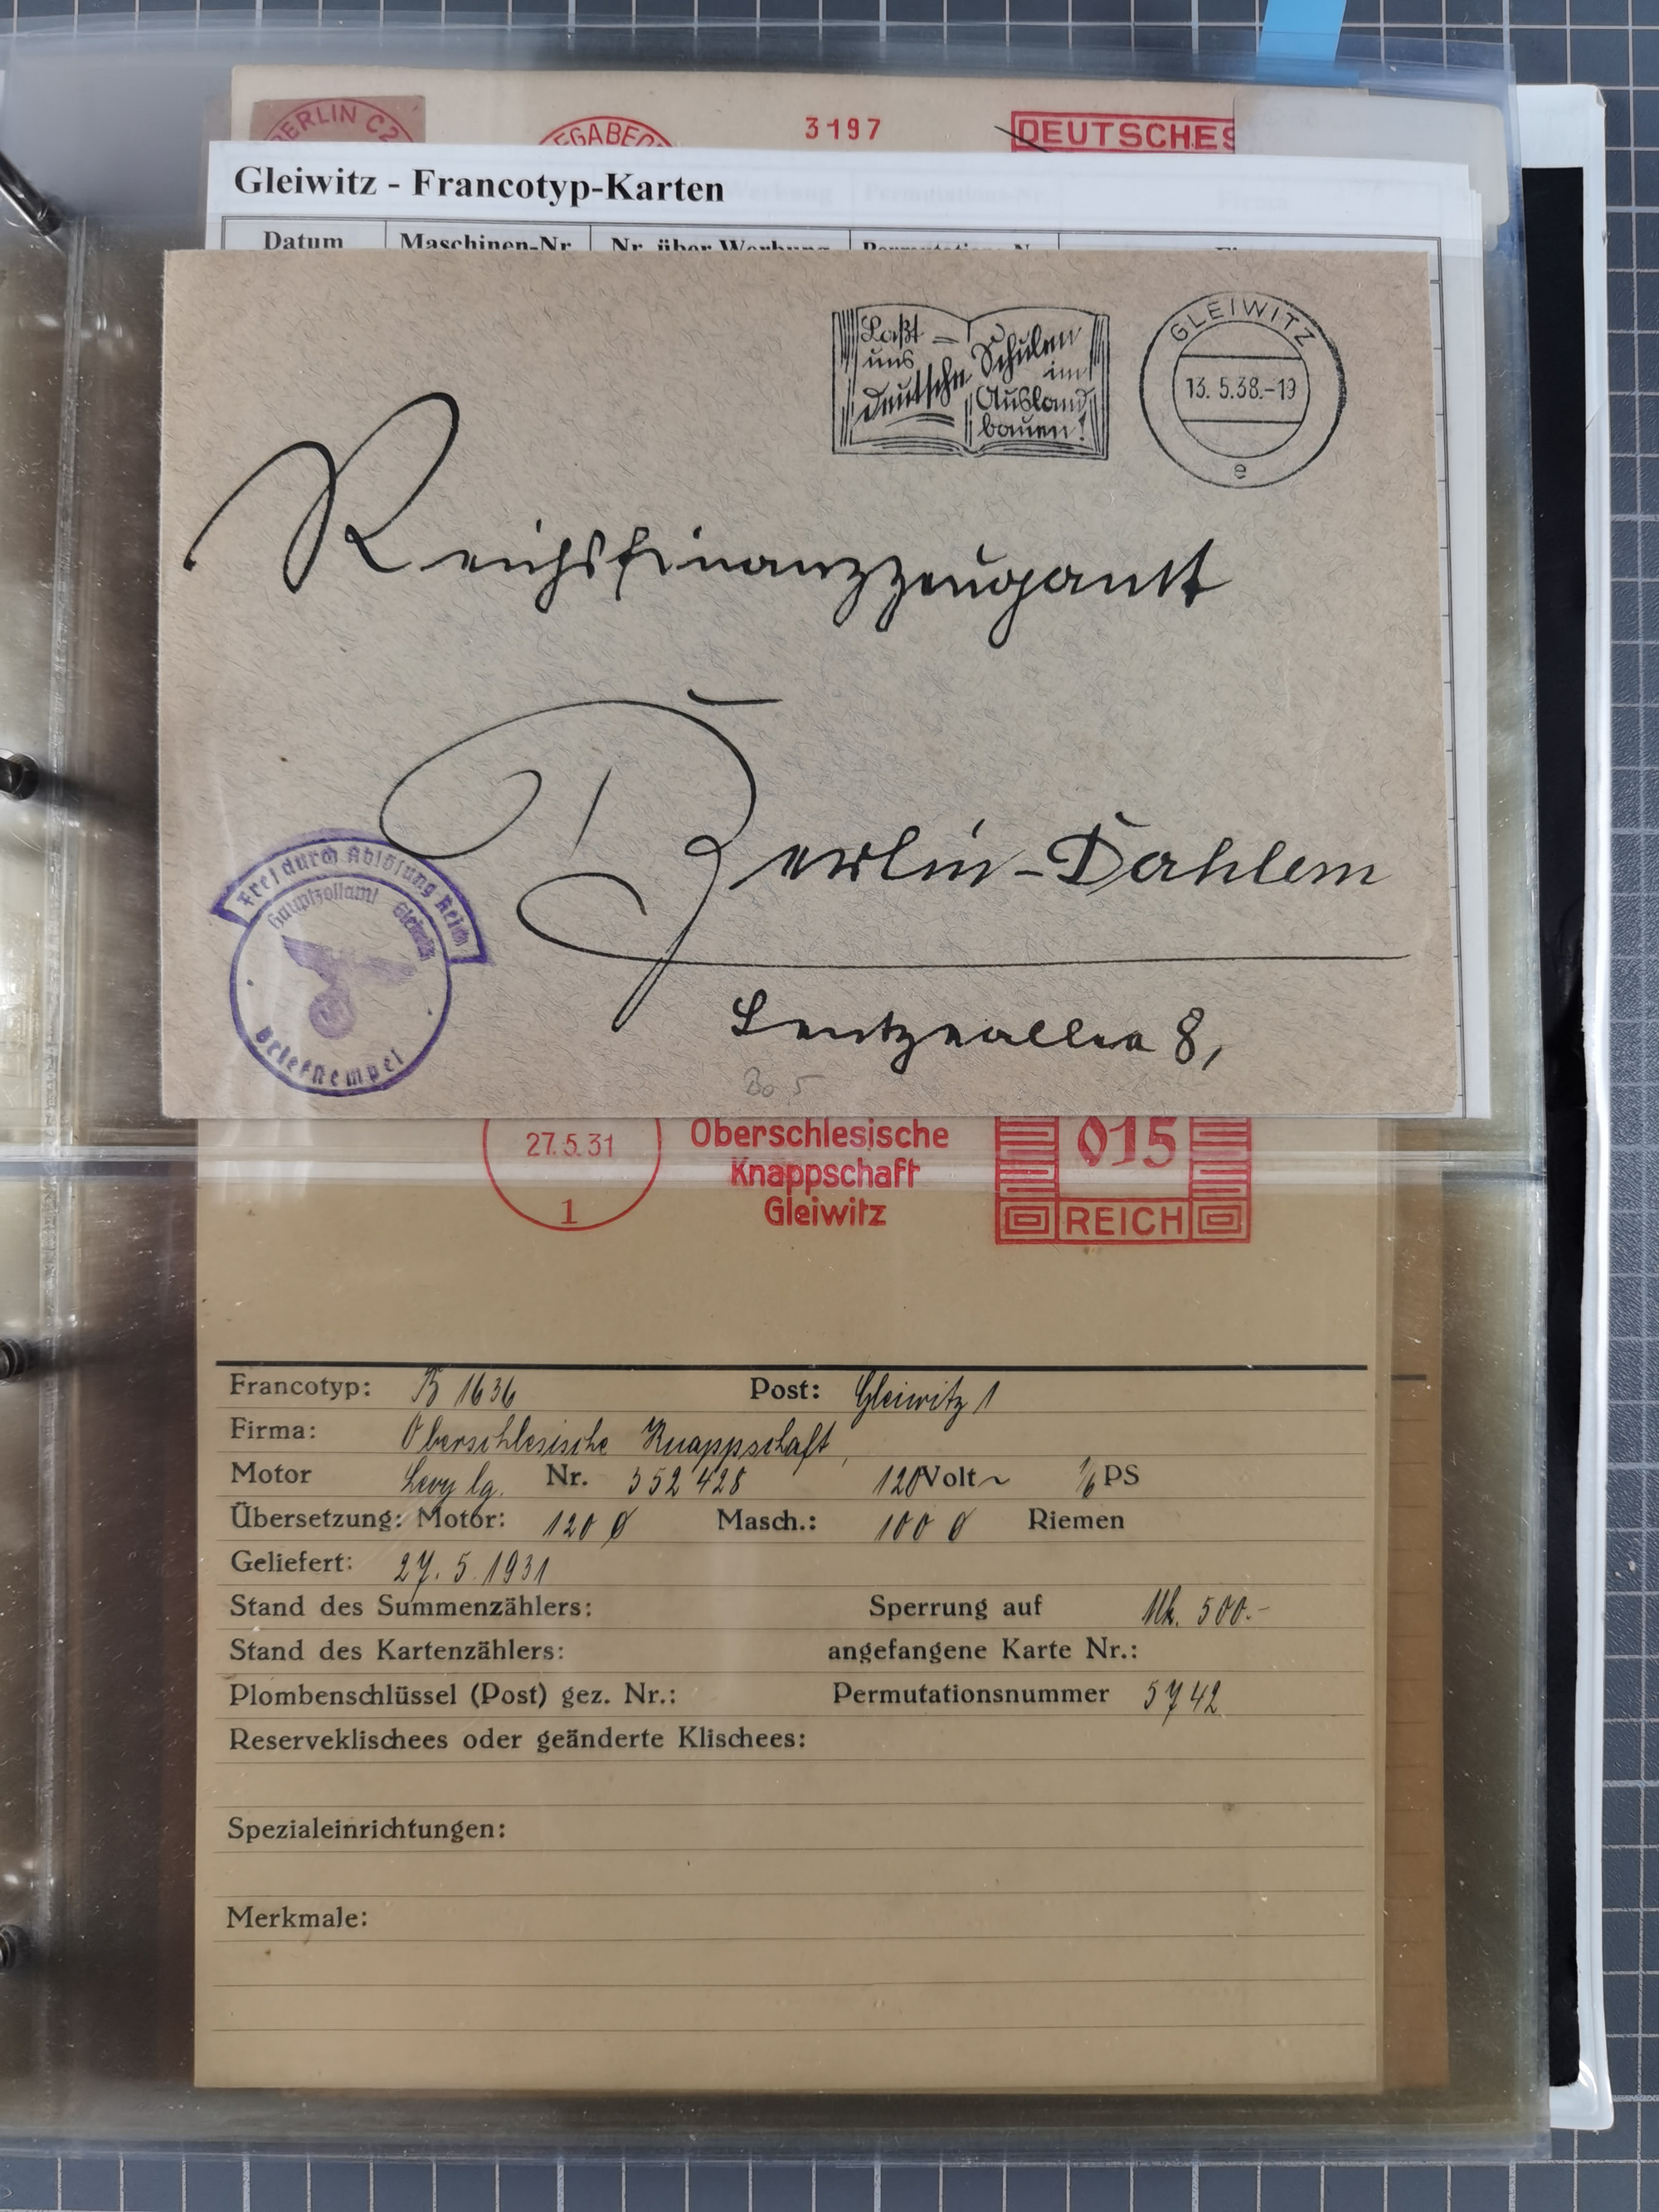 BERLIN C2
3197
DEUTSCHES
Gleiwitz - Francotyp-Karten
Datum Maschinen-Nr. Nr. über Werbung
Laßt
uns
deutsche Schulen
im
Ausland
bauen!
GLEIWITZ
13. 5.38.-19
e
Reichsfinanzzeugamt
Berlin-Dahlem
Lentzeallee 8,
Frei durch Ablösung Reich
Hauptzollamt Gleiwitz
Briefstempel
27.5.31
1
Oberschlesische
Knappschaft
Gleiwitz
015
REICH
Francotyp: B 1636 Post: Gleiwitz 1
Firma: Oberschlesische Knappschaft,
Motor Nr. 352428 120 Volt ~ 1/6 PS
Übersetzung: Motor: 120 Ø Masch.: 100 Ø Riemen
Geliefert: 27. 5. 1931
Stand des Summenzählers: Sperrung auf Mk. 500.-
Stand des Kartenzählers: angefangene Karte Nr.:
Plombenschlüssel (Post) gez. Nr.: Permutationsnummer 5742
Reserveklischees oder geänderte Klischees:
Spezialeinrichtungen:
Merkmale: